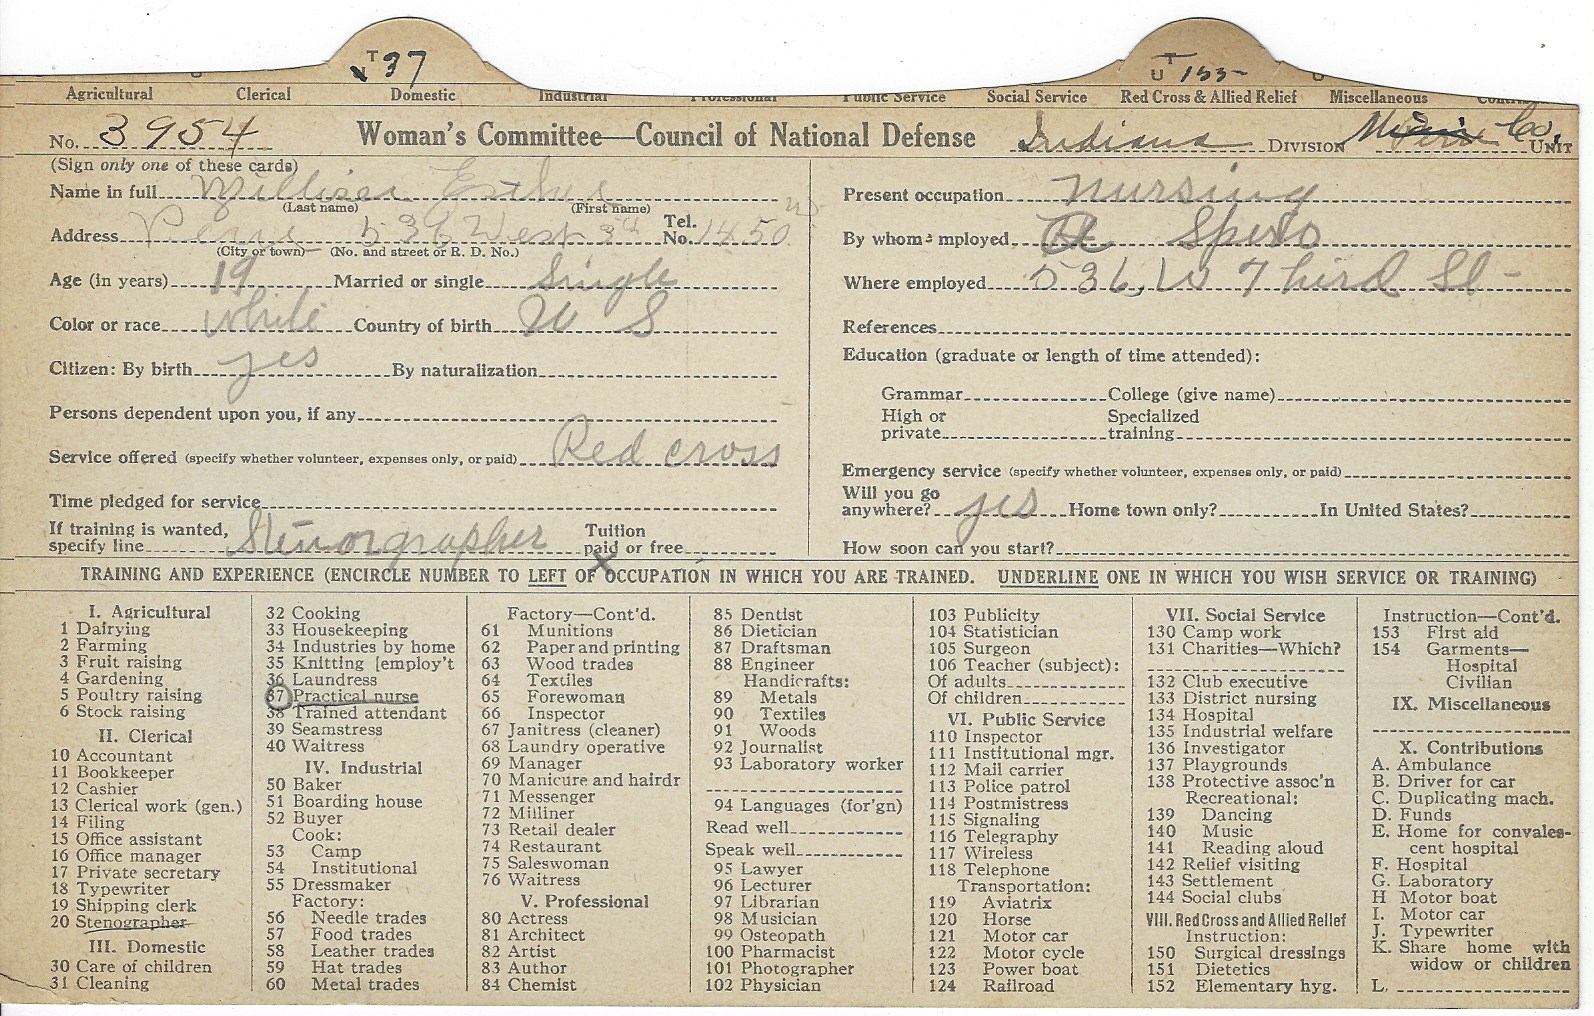 T 37
T
U 155
Agricultural Clerical Domestic Industrial Professional Public Service Social Service Red Cross & Allied Relief Miscellaneous
No. 3954 Woman's Committee—Council of National Defense Indiana DIVISION Miami Co. UNIT
(Sign only one of these cards)
Name in full Esther
(Last name) (First name)
Address Peru 536 West 3rd Tel. No. 1450
(City or town) (No. and street or R. D. No.)
Age (in years) 19 Married or single Single
Color or race White Country of birth U S
Citizen: By birth yes By naturalization
Persons dependent upon you, if any
Service offered (specify whether volunteer, expenses only, or paid) Red cross
Time pledged for service
If training is wanted, specify line Stenorgrapher Tuition paid or free x
Present occupation nursing
By whom employed
Where employed 536, W Third St-
References
Education (graduate or length of time attended):
Grammar College (give name)
High or private Specialized training
Emergency service (specify whether volunteer, expenses only, or paid)
Will you go anywhere? yes Home town only? In United States?
How soon can you start?
TRAINING AND EXPERIENCE (ENCIRCLE NUMBER TO LEFT OF OCCUPATION IN WHICH YOU ARE TRAINED. UNDERLINE ONE IN WHICH YOU WISH SERVICE OR TRAINING)
I. Agricultural
1 Dairying
2 Farming
3 Fruit raising
4 Gardening
5 Poultry raising
6 Stock raising
II. Clerical
10 Accountant
11 Bookkeeper
12 Cashier
13 Clerical work (gen.)
14 Filing
15 Office assistant
16 Office manager
17 Private secretary
18 Typewriter
19 Shipping clerk
20 Stenographer
III. Domestic
30 Care of children
31 Cleaning
32 Cooking
33 Housekeeping
34 Industries by home
35 Knitting [employ't
36 Laundress
37 Practical nurse
38 Trained attendant
39 Seamstress
40 Waitress
IV. Industrial
50 Baker
51 Boarding house
52 Buyer
Cook:
53 Camp
54 Institutional
55 Dressmaker
Factory:
56 Needle trades
57 Food trades
58 Leather trades
59 Hat trades
60 Metal trades
Factory—Cont'd.
61 Munitions
62 Paper and printing
63 Wood trades
64 Textiles
65 Forewoman
66 Inspector
67 Janitress (cleaner)
68 Laundry operative
69 Manager
70 Manicure and hairdr
71 Messenger
72 Milliner
73 Retail dealer
74 Restaurant
75 Saleswoman
76 Waitress
V. Professional
80 Actress
81 Architect
82 Artist
83 Author
84 Chemist
85 Dentist
86 Dietician
87 Draftsman
88 Engineer
Handicrafts:
89 Metals
90 Textiles
91 Woods
92 Journalist
93 Laboratory worker
94 Languages (for'gn)
Read well
Speak well
95 Lawyer
96 Lecturer
97 Librarian
98 Musician
99 Osteopath
100 Pharmacist
101 Photographer
102 Physician
103 Publicity
104 Statistician
105 Surgeon
106 Teacher (subject):
Of adults
Of children
VI. Public Service
110 Inspector
111 Institutional mgr.
112 Mail carrier
113 Police patrol
114 Postmistress
115 Signaling
116 Telegraphy
117 Wireless
118 Telephone
Transportation:
119 Aviatrix
120 Horse
121 Motor car
122 Motor cycle
123 Power boat
124 Railroad
VII. Social Service
130 Camp work
131 Charities—Which?
132 Club executive
133 District nursing
134 Hospital
135 Industrial welfare
136 Investigator
137 Playgrounds
138 Protective assoc'n
Recreational:
139 Dancing
140 Music
141 Reading aloud
142 Relief visiting
143 Settlement
144 Social clubs
VIII. Red Cross and Allied Relief
Instruction:
150 Surgical dressings
151 Dietetics
152 Elementary hyg.
Instruction—Cont'd.
153 First aid
154 Garments—
Hospital
Civilian
IX. Miscellaneous
X. Contributions
A. Ambulance
B. Driver for car
C. Duplicating mach.
D. Funds
E. Home for convales-
cent hospital
F. Hospital
G. Laboratory
H Motor boat
I. Motor car
J. Typewriter
K. Share home with
widow or children
L.